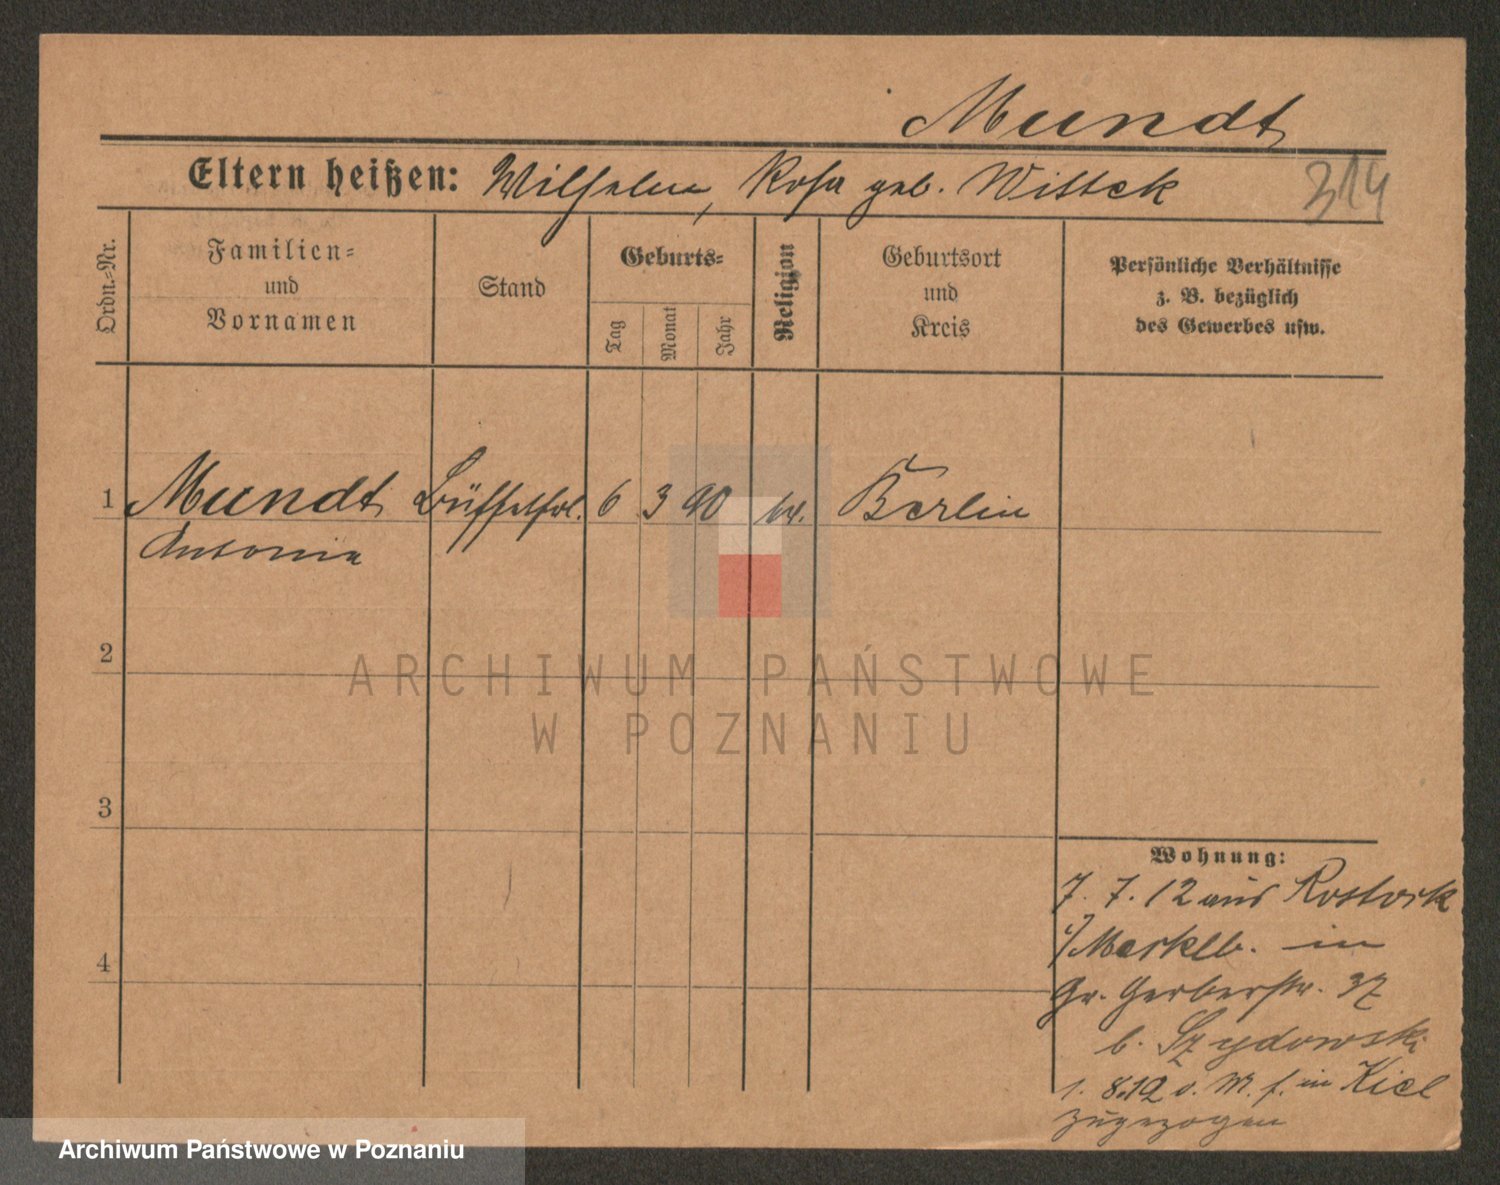 Mundt
Eltern heißen: Wilhelm, Rosa geb. Wittek
314
Ordn.-Nr.
Familien-
und
Vornamen
Stand
Geburts-
Tag
Monat
Jahr
Religion
Geburtsort
und
Kreis
Persönliche Verhältnisse
z. B. bezüglich
des Gewerbes usw.
1 Mundt Büffetfrl. 6 3 90 Berlin
Antonie
2
3
4
Wohnung:
7. 7. 12 aus Rostock
i/Mecklb. in
Gr. Gerberstr. 37
b. Szydowski
1. 8.12 v. M. f. in Kiel
zugezogen
ARCHIWUM PAŃSTWOWE
W POZNANIU
Archiwum Państwowe w Poznaniu